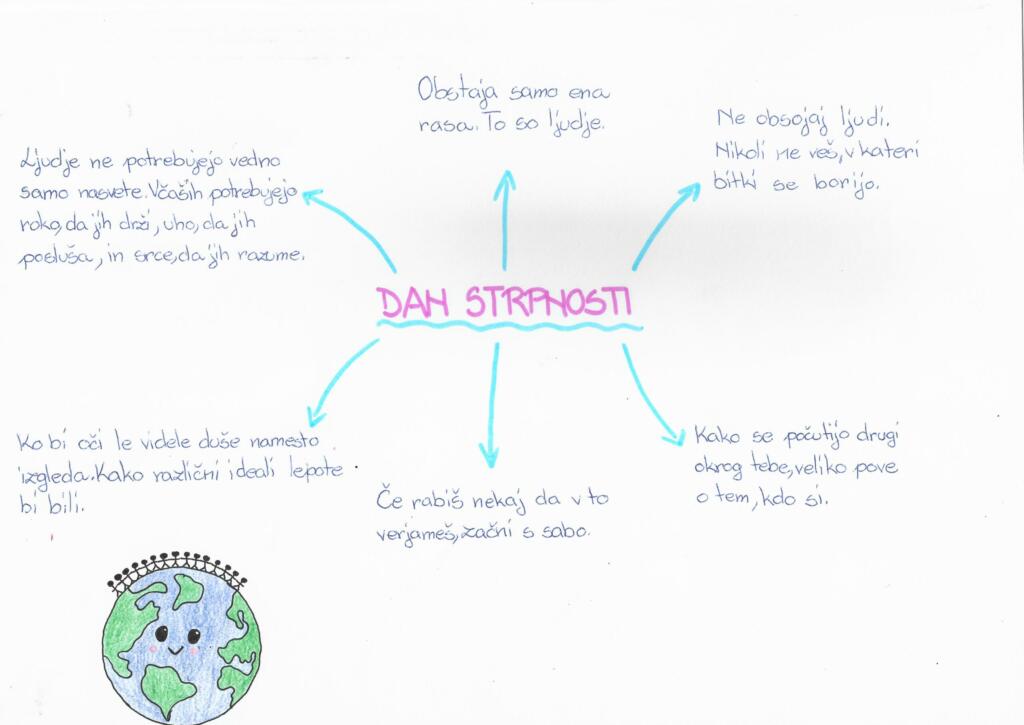 Obstaja samo ena
rasa. To so ljudje.
Ne obsojaj ljudi.
Nikoli ne veš, v kateri
bitki se borijo.
Ljudje ne potrebujejo vedno
samo nasvete. Včaših potrebujejo
roko, da jih drži, uho, da jih
posluša, in srce, da jih razume.
DAN STRPNOSTI
Ko bi oči le videle duše namesto
izgleda. Kako različni ideali lepote
bi bili.
Če rabiš nekaj da v to
verjameš, začni s sabo.
Kako se počutijo drugi
okrog tebe, veliko pove
o tem, kdo si.